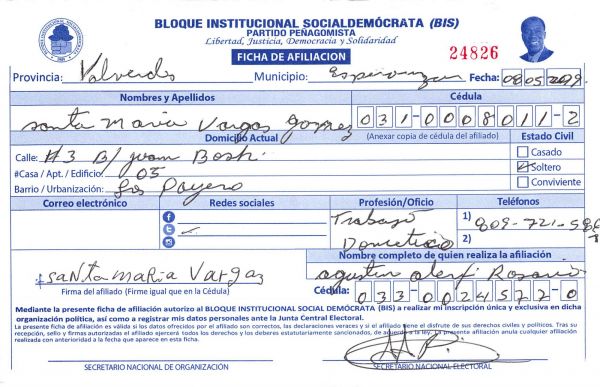 BLOQUE INSTITUCIONAL SOCIALDEMÓCRATA (BIS)
PARTIDO PEÑAGOMISTA
Libertad, Justicia, Democracia y Solidaridad
FICHA DE AFILIACION
24826
Provincia: Valverde Municipio: Esperanza Fecha: 08.05.2019
Nombres y Apellidos Cédula
Santa Maria Vargas Gomez 031-0008011-2
Domicilio Actual (Anexar copia de cédula del afiliado) Estado Civil
Calle: #3 B/ Juam Bosh. Casado
#Casa / Apt. / Edificio: 05 Soltero
Barrio / Urbanización: Los Conviviente
Correo electrónico Redes sociales Profesión/Oficio Teléfonos
Trabajo 1) 809-721-
Dometicio 2)
Nombre completo de quien realiza la afiliación
Santa Maria Vargas Agustin Rosario
Firma del afiliado (Firme igual que en la Cédula) Cédula: 033-0024577-0
Mediante la presente ficha de afiliación autorizo al BLOQUE INSTITUCIONAL SOCIAL DEMÓCRATA (BIS) a realizar mi inscripción única y exclusiva en dicha
organización política, así como a registrar mis datos personales ante la Junta Central Electoral.
La presente ficha de afiliación es válida si los datos ofrecidos por el afiliado son correctos, las declaraciones veraces y si el afiliado tiene el disfrute de sus derechos civiles y políticos. Tras su
recepción, sello y firmas autorizadas el afiliado ejercerá todos los derechos y los deberes estatutariamente sancionados, de acuerdo a la ley. La presente afiliación anula cualquier afiliación
realizada con anterioridad a la fecha que aparece en esta ficha.
SECRETARIO NACIONAL DE ORGANIZACIÓN SECRETARIO NACIONAL ELECTORAL